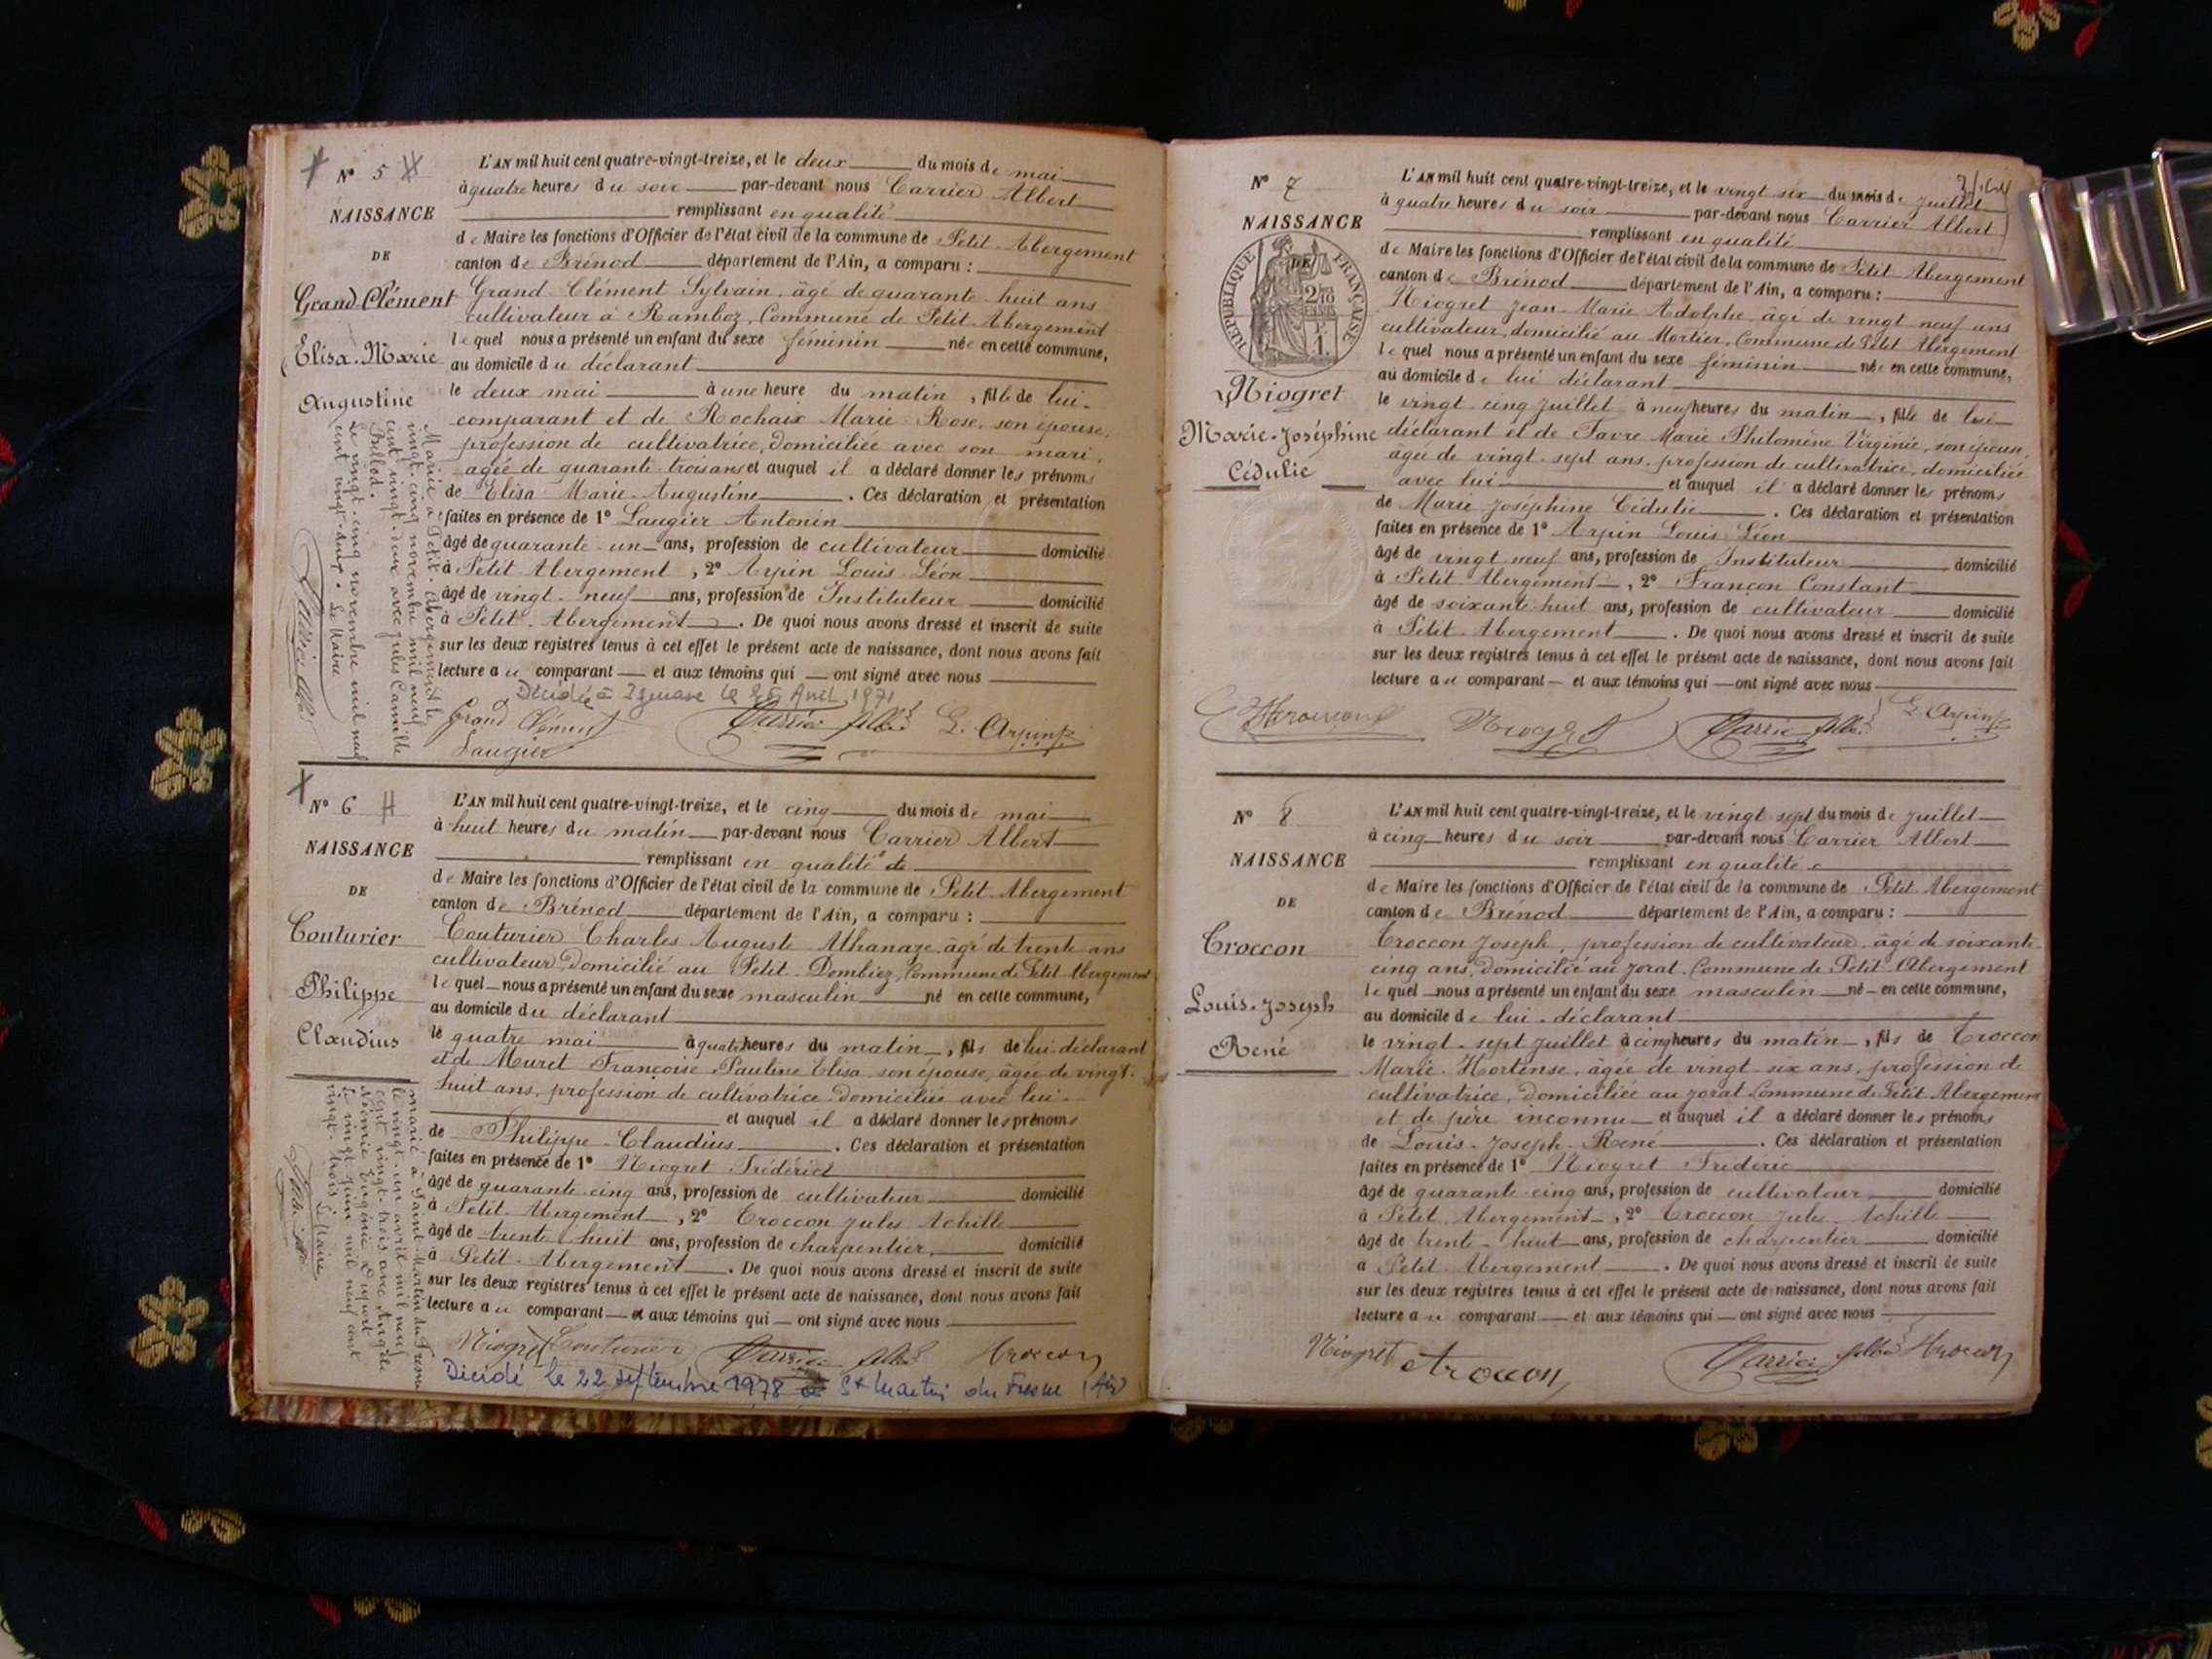 N° 5
NAISSANCE
DE
Grand Clément
Elisa-Marie
Augustine
L'AN mil huit cent quatre-vingt-treize, et le deux du mois de mai
à quatre heures du soir par-devant nous Carrier Albert
remplissant en qualité
de Maire les fonctions d'Officier de l'état civil de la commune de Petit-Abergement
canton de Brénod département de l'Ain, a comparu :
Grand-Clément Sylvain, âgé de quarante-huit ans
cultivateur à Ramboz, Commune de Petit-Abergement
lequel nous a présenté un enfant du sexe féminin née en cette commune,
au domicile du déclarant
le deux mai à une heure du matin, fille de lui-
comparant et de Rochaix Marie-Rose, son épouse,
profession de cultivatrice, domiciliée avec son mari,
agée de quarante-trois ans et auquel il a déclaré donner les prénoms
de Elisa-Marie-Augustine. Ces déclaration et présentation
faites en présence de 1° Laugier Antonin
âgé de quarante-un ans, profession de cultivateur domicilié
à Petit-Abergement, 2° Arpin Louis-Léon
âgé de vingt-neuf ans, profession de Instituteur domicilié
à Petit-Abergement. De quoi nous avons dressé et inscrit de suite
sur les deux registres tenus à cet effet le présent acte de naissance, dont nous avons fait
lecture au comparant et aux témoins qui ont signé avec nous
Décédée à Izenave le 25 Avril 1971
Grand Clément
Carrier Albert
L. Arpin
Laugier
Mariée à Petit-Abergement le
vingt-cinq novembre mil neuf
cent vingt-deux avec Jules Camille
Le vingt-cinq novembre mil neuf
cent vingt-deux. Le Maire
N° 6
NAISSANCE
DE
Couturier
Philippe
Claudius
L'AN mil huit cent quatre-vingt-treize, et le cinq du mois de mai
à huit heures du matin par-devant nous Carrier Albert
remplissant en qualité de
de Maire les fonctions d'Officier de l'état civil de la commune de Petit-Abergement
canton de Brénod département de l'Ain, a comparu :
Couturier Charles Auguste Athanaze, âgé de trente ans
cultivateur, domicilié au Petit-Dombiez, Commune de Petit Abergement
lequel nous a présenté un enfant du sexe masculin né en cette commune,
au domicile du déclarant
le quatre mai à quatre heures du matin, fils de lui déclarant
et de Muret Françoise Pauline Elisa son épouse, âgée de vingt-
huit ans, profession de cultivatrice domiciliée avec lui
et auquel il a déclaré donner les prénoms
de Philippe-Claudius. Ces déclaration et présentation
faites en présence de 1° Niogret Frédéric
âgé de quarante-cinq ans, profession de cultivateur domicilié
à Petit-Abergement, 2° Croccon Jules Achille
âgé de trente-huit ans, profession de charpentier domicilié
à Petit-Abergement. De quoi nous avons dressé et inscrit de suite
sur les deux registres tenus à cet effet le présent acte de naissance, dont nous avons fait
lecture au comparant et aux témoins qui ont signé avec nous
Niogret Couturier Carrier Albert Croccon
Décidé le 22 septembre 1978 à St Martin du Fresne (Ain)
marié à Saint-Martin du Fresne
le vingt-un avril mil neuf
cent vingt-trois avec Angèle
Noémie Eugénie Dupont
Le vingt juin mil neuf cent
vingt-trois Le Maire
N° 7
NAISSANCE
DE
RÉPUBLIQUE FRANÇAISE
Niogret
Marie-Joséphine
Cédulie
L'AN mil huit cent quatre-vingt-treize, et le vingt six du mois de Juillet
à quatre heures du soir par-devant nous Carrier Albert
remplissant en qualité
de Maire les fonctions d'Officier de l'état civil de la commune de Petit Abergement
canton de Brénod département de l'Ain, a comparu :
Niogret Jean-Marie Adolphe âgé de vingt neuf ans
cultivateur, domicilié au Mortier, Commune de Petit Abergement
lequel nous a présenté un enfant du sexe féminin née en cette commune,
au domicile de lui déclarant
le vingt cinq Juillet à neuf heures du matin, fille de lui
déclarant et de Favre Marie Philomène Virginie, son épouse,
agée de vingt-sept ans, profession de cultivatrice, domiciliée
avec lui et auquel il a déclaré donner les prénoms
de Marie Joséphine Cédulie. Ces déclaration et présentation
faites en présence de 1° Arpin Louis-Léon
âgé de vingt neuf ans, profession de Instituteur domicilié
à Petit Abergement, 2° Françon Constant
âgé de soixante-huit ans, profession de cultivateur domicilié
à Petit-Abergement. De quoi nous avons dressé et inscrit de suite
sur les deux registres tenus à cet effet le présent acte de naissance, dont nous avons fait
lecture au comparant et aux témoins qui ont signé avec nous
Niogret Carrier Albert L. Arpin
N° 8
NAISSANCE
DE
Croccon
Louis-Joseph
René
L'AN mil huit cent quatre-vingt-treize, et le vingt-sept du mois de Juillet
à cinq heures du soir par-devant nous Carrier Albert
remplissant en qualité
de Maire les fonctions d'Officier de l'état civil de la commune de Petit-Abergement
canton de Brénod département de l'Ain, a comparu :
Croccon Joseph, profession de cultivateur âgé de soixante-
cinq ans, domicilié au Jorat, Commune de Petit-Abergement
lequel nous a présenté un enfant du sexe masculin né en cette commune,
au domicile de lui-déclarant
le vingt-sept Juillet à cinq heures du matin, fils de Croccon
Marie-Hortense, âgée de vingt-six ans, profession de
cultivatrice, domiciliée au Jorat Commune de Petit-Abergement
et de père inconnu et auquel il a déclaré donner les prénoms
de Louis-Joseph-René. Ces déclaration et présentation
faites en présence de 1° Niogret Frédéric
âgé de quarante-cinq ans, profession de cultivateur domicilié
à Petit-Abergement, 2° Croccon Jules-Achille
âgé de trente-huit ans, profession de charpentier domicilié
à Petit-Abergement. De quoi nous avons dressé et inscrit de suite
sur les deux registres tenus à cet effet le présent acte de naissance, dont nous avons fait
lecture au comparant et aux témoins qui ont signé avec nous
Niogret Croccon Carrier Albert Croccon